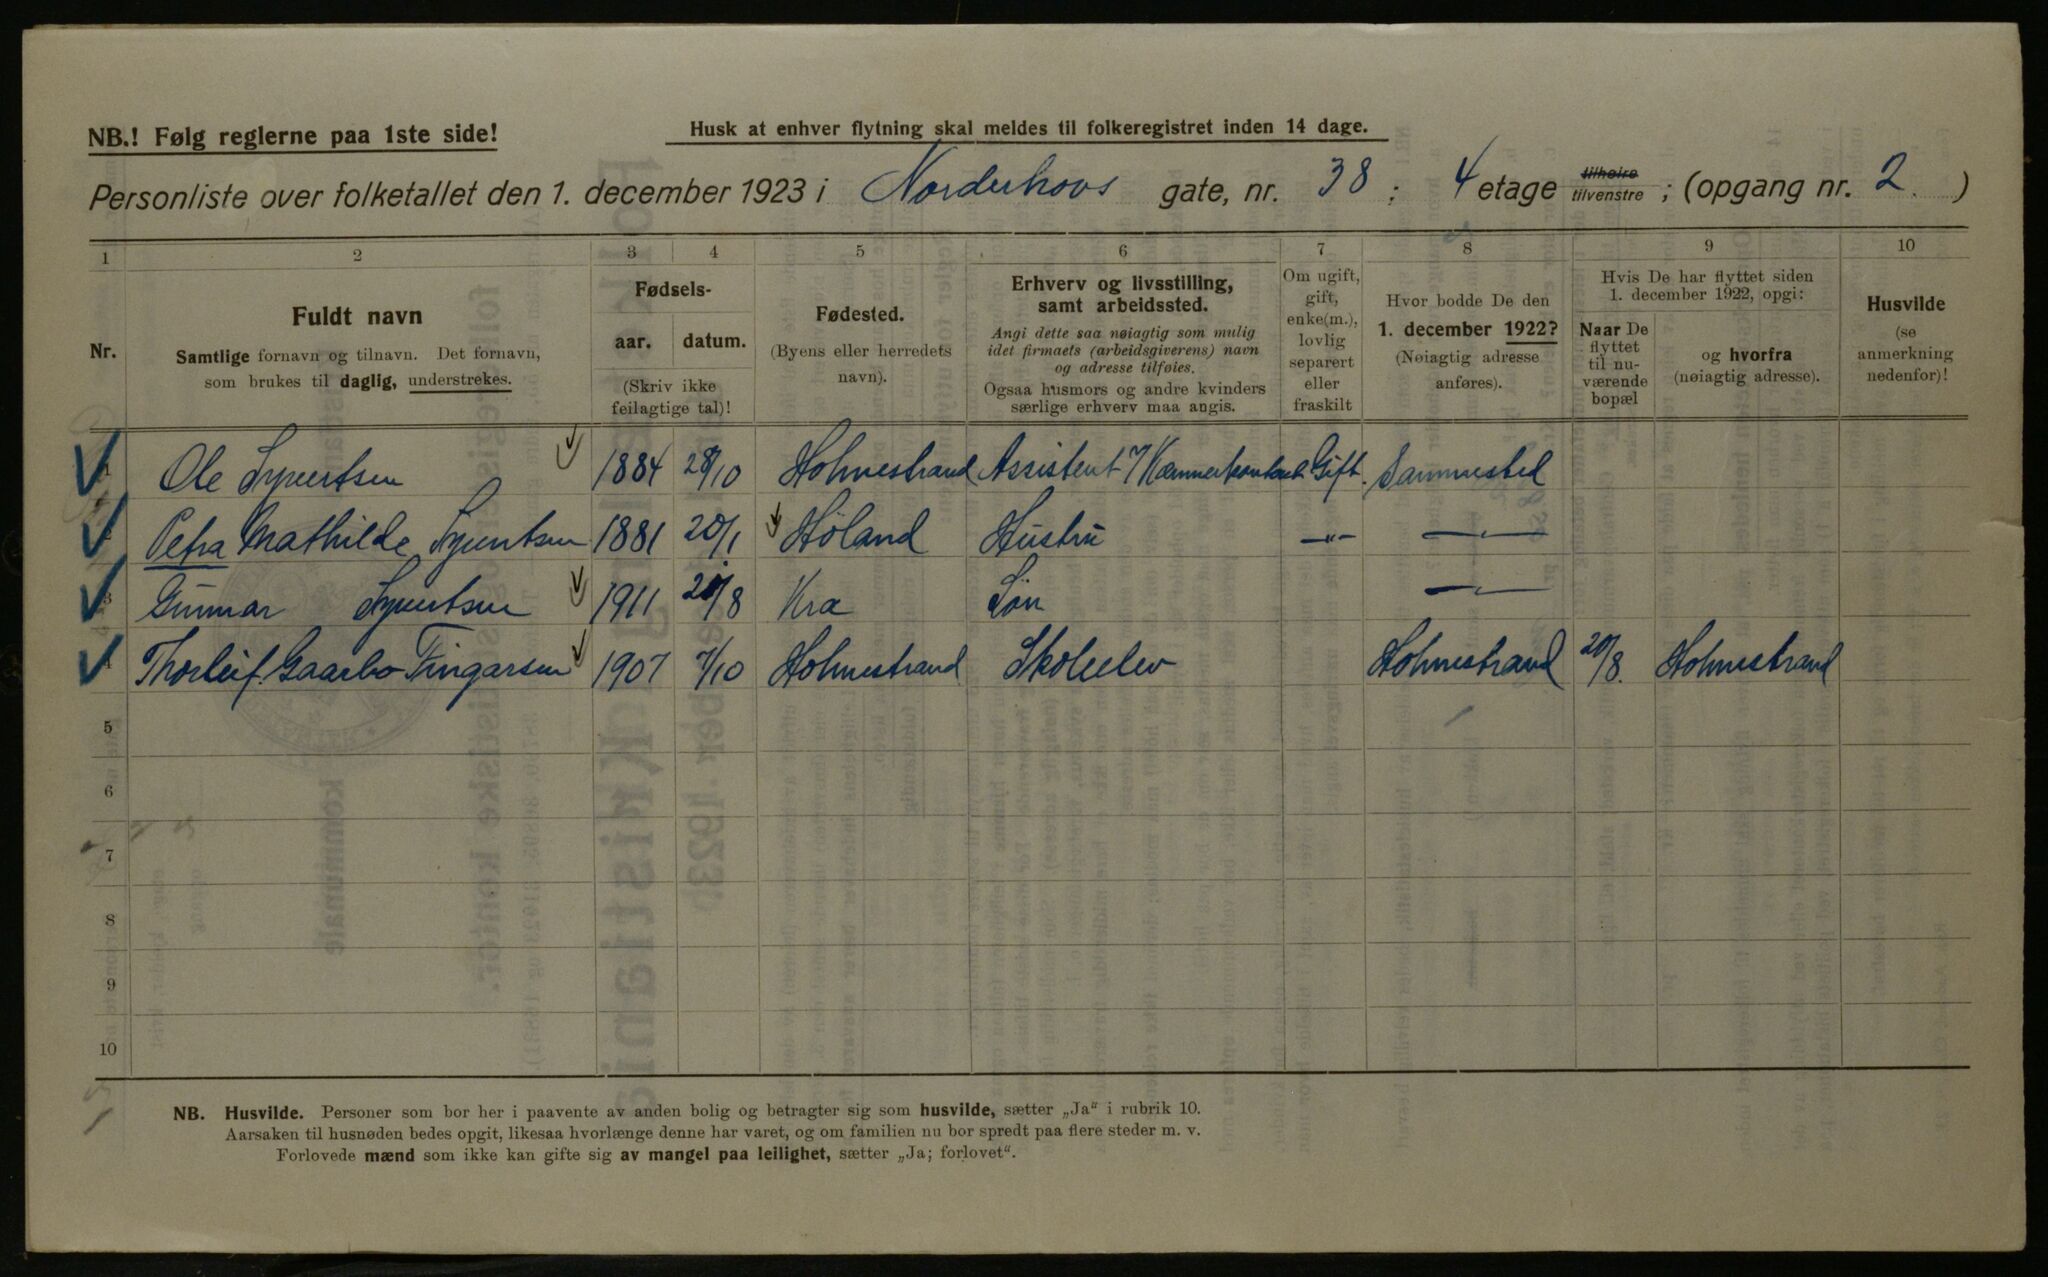 NB.! Følg reglerne paa 1ste side!
Husk at enhver flytning skal meldes til folkeregistret inden 14 dage.
Personliste over folketallet den 1. december 1923 i Norderhovs gate, nr. 38 ; 4 etage tilhøire tilvenstre ; (opgang nr. 2 )
1 2 3 4 5 6 7 8 9 10
Nr.
Fuldt navn
Samtlige fornavn og tilnavn. Det fornavn,
som brukes til daglig, understrekes.
Fødsels-
aar. datum.
(Skriv ikke
feilagtige tal)!
Fødested.
(Byens eller herredets
navn).
Erhverv og livsstilling,
samt arbeidssted.
Angi dette saa nøiagtig som mulig
idet firmaets (arbeidsgiverens) navn
og adresse tilføies.
Ogsaa husmors og andre kvinders
særlige erhverv maa angis.
Om ugift,
gift,
enke(m.),
lovlig
separert
eller
fraskilt
Hvor bodde De den
1. december 1922?
(Nøiagtig adresse
anføres).
Hvis De har flyttet siden
1. december 1922, opgi:
Naar De
flyttet
til nu-
værende
bopæl
og hvorfra
(nøiagtig adresse).
Husvilde
(se
anmerkning
nedenfor)!
1 Ole Syvertsen 1884 28/10 Holmestrand Assistent v/ Kæmnerkontoret Gift. Sammested
2 Petra Mathilde Syvertsen 1881 20/1 Høland Hustru —"— —"—
3 Gunnar Syvertsen 1911 /8 Kra Søn —"—
4 Thorleif Gaarbo Fingarsen 1907 7/10 Holmestrand Skoleelev Holmestrand 20/8. Holmestrand
5
6
7
8
9
10
NB. Husvilde. Personer som bor her i paavente av anden bolig og betragter sig som husvilde, sætter „Ja" i rubrik 10.
Aarsaken til husnøden bedes opgit, likesaa hvorlænge denne har varet, og om familien nu bor spredt paa flere steder m. v.
Forlovede mænd som ikke kan gifte sig av mangel paa leilighet, sætter „Ja; forlovet".